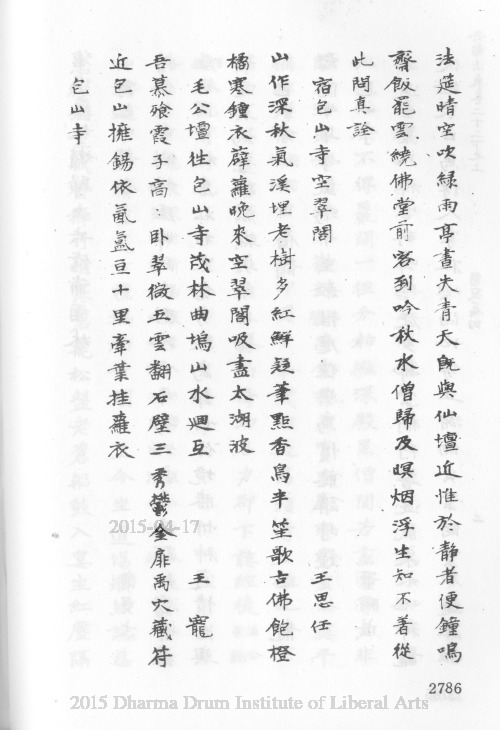 法筵晴空吹綠雨亭晝失青天既與仙壇近惟於静者便鐘鳴
齋飯罷雲繞佛堂前客到吟秋水僧歸及暝烟浮生知不著從
此問真詮
宿包山寺空翠閣 王思任
山作深秋氣溪埋老樹多紅鮮疑筆點香鳥半笙歌古佛飽橙
橘寒鐘衣薜蘿晚來空翠閣吸盡太湖波
毛公壇徃包山寺茂林曲塢山水迴互 王寵
吾慕飱霞子高卧翠微五雲翻石壁三秀鬱金扉禹穴藏符
近包山擁錫依氤氳亘十里牽葉挂蘿衣
包山寺
2015-04-17
2786
2015 Dharma Drum Institute of Liberal Arts